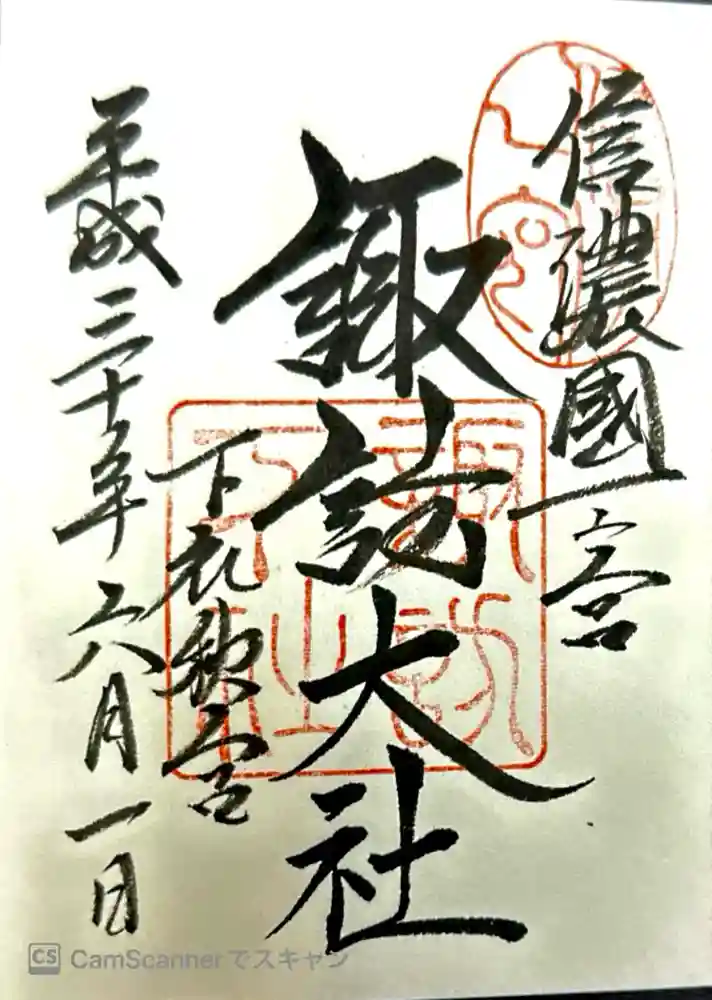 信濃國一宮
諏訪大社
下社秋宮
平成三十年六月一日
CS CamScannerでスキャン